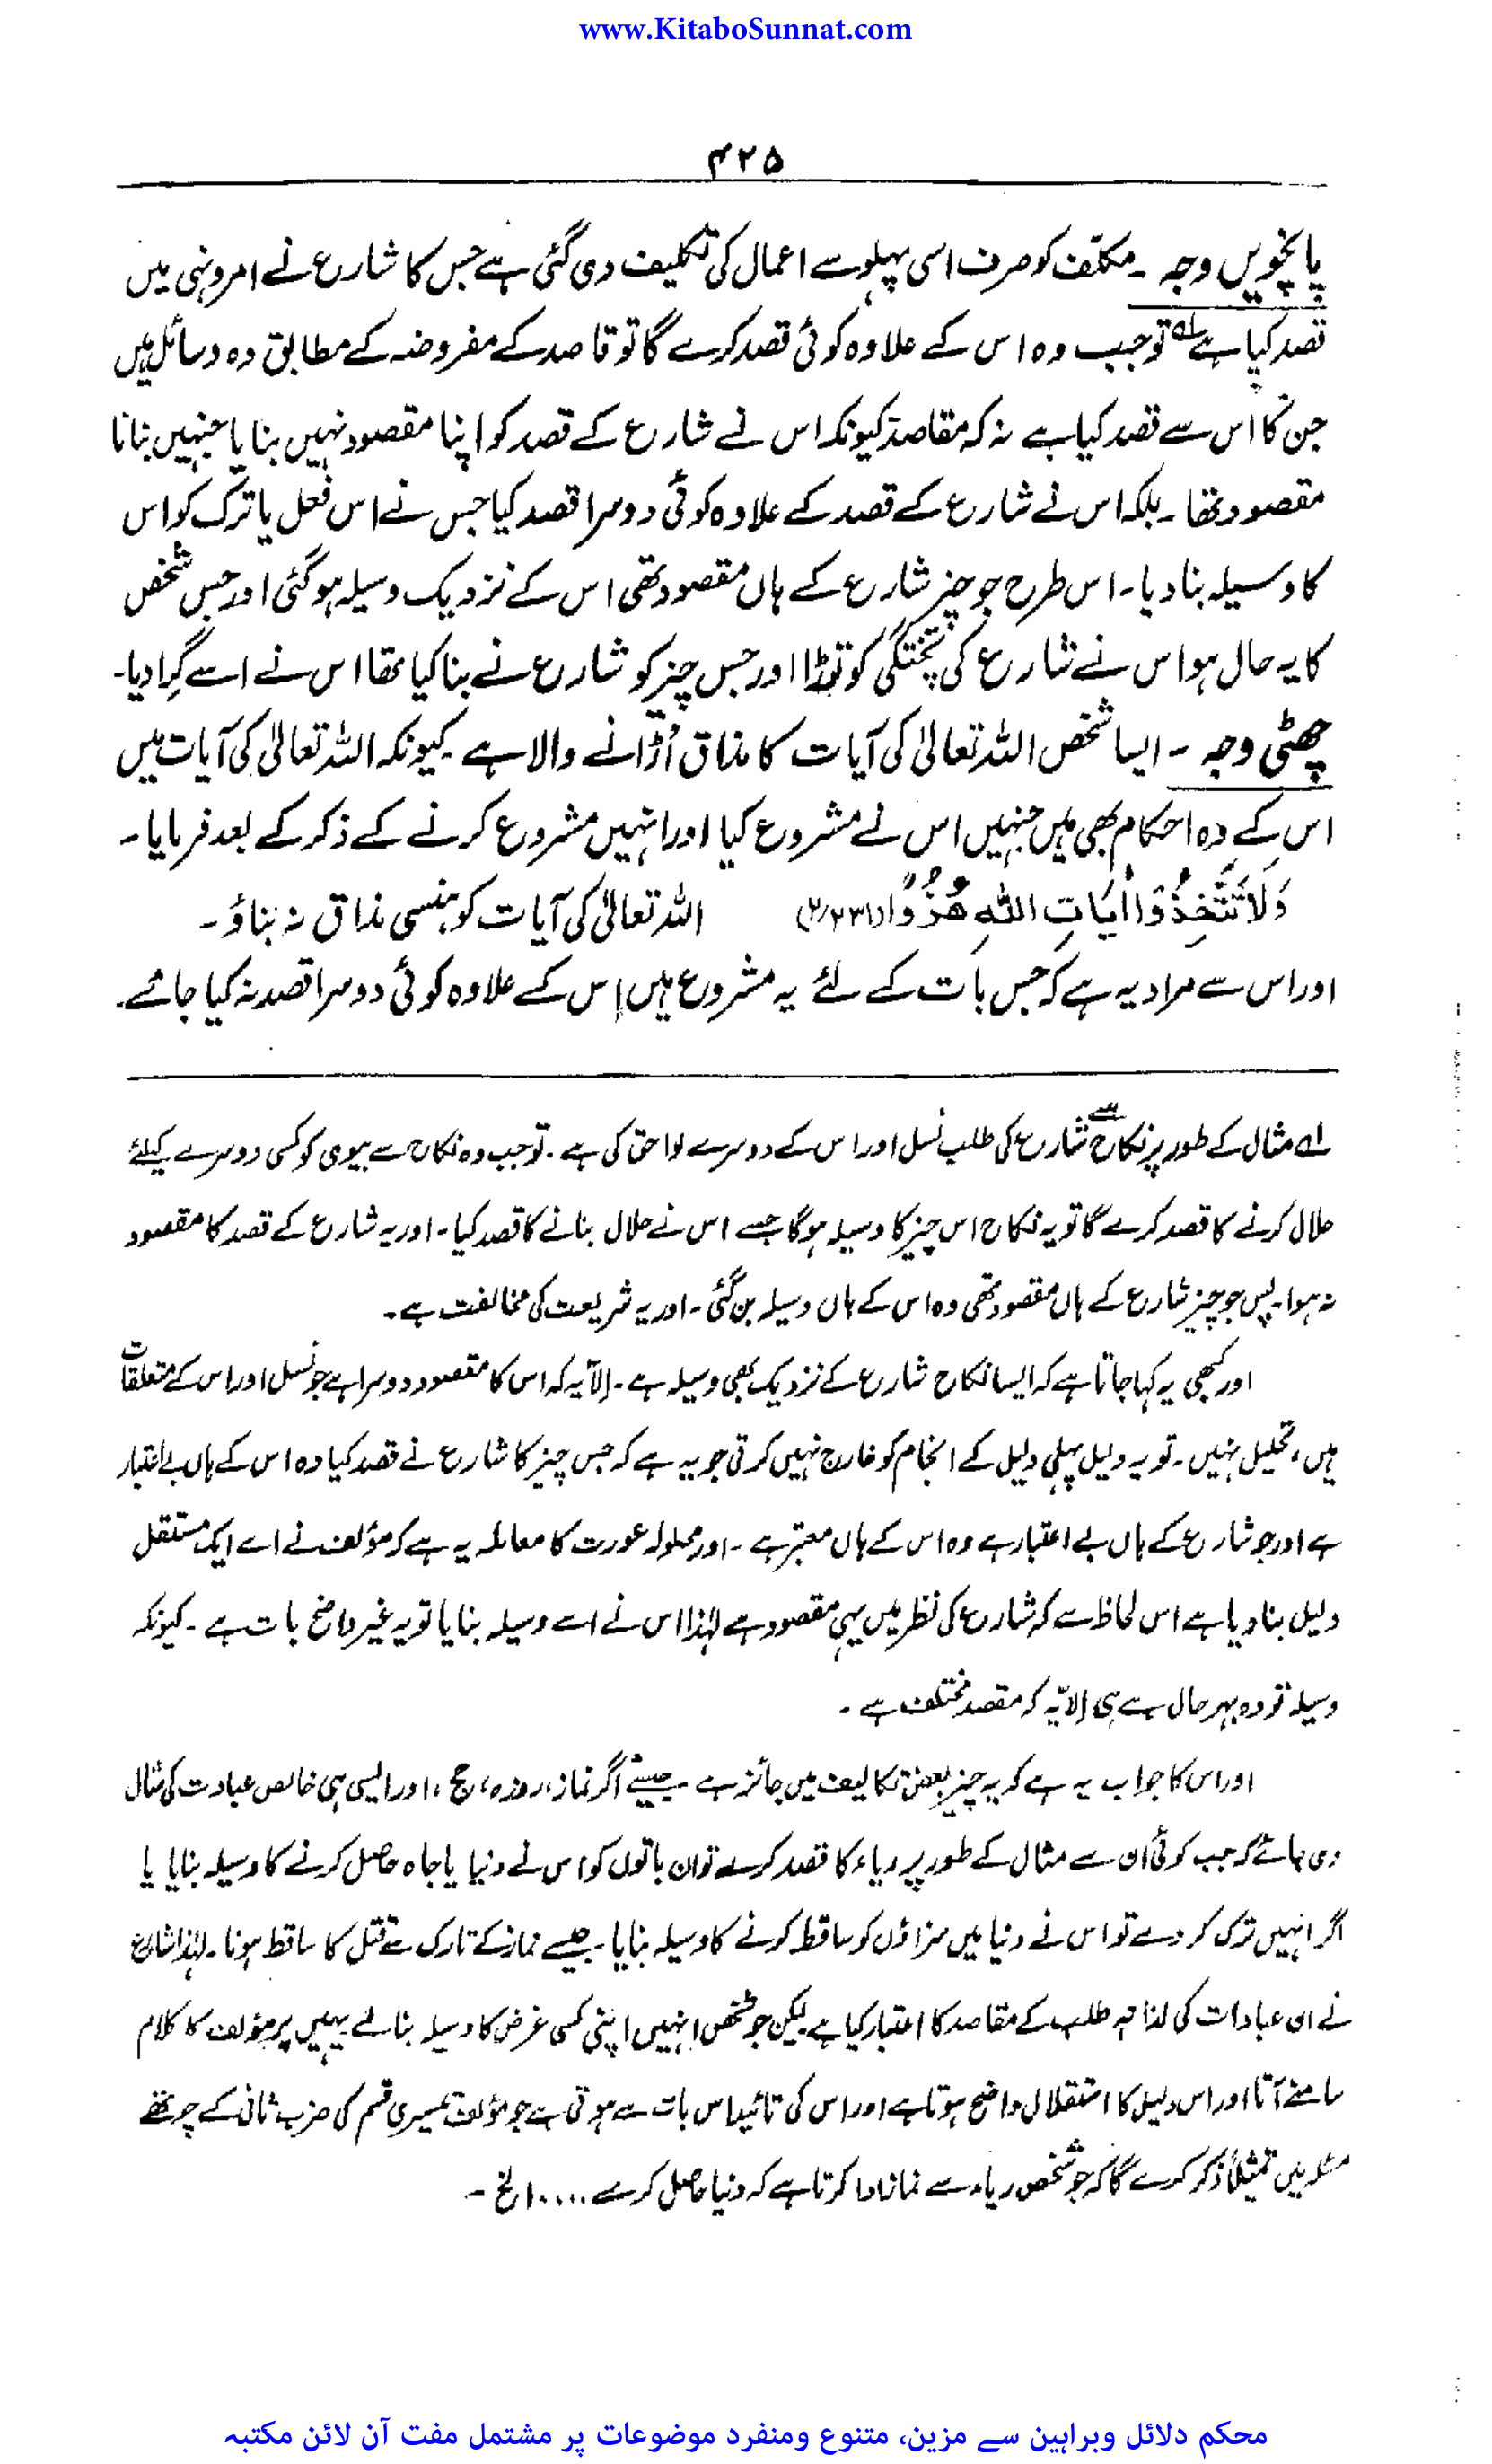 www.KitaboSunnat.com
۴۲۵
پانچویں وجہ ۔ مکلّف کو صرف اسی پہلو سے اعمال کی تکلیف دی گئی ہے جس کا شارع نے امر و نہی میں
قصد کیا ہے لہ تو جب وہ اس کے علاوہ کوئی قصد کرے گا تو قاصد کے مفروضہ کے مطابق وہ وسائل ہیں
جن کا اس سے قصد کیا ہے نہ کہ مقاصد کیونکہ اس نے شارع کے قصد کو اپنا مقصود نہیں بنایا جنہیں بنانا
مقصود تھا۔ بلکہ اس نے شارع کے قصد کے علاوہ کوئی دوسرا قصد کیا جس نے اس فعل یا ترک کو اس
کا وسیلہ بنا دیا۔ اس طرح جو چیز شارع کے ہاں مقصود تھی اس کے نزدیک وسیلہ ہو گئی اور جس شخص
کا یہ حال ہو اس نے شارع کی پختگی کو توڑا اور جس چیز کو شارع نے بنا کیا تھا اس نے اسے گِرا دیا۔
چھٹی وجہ ۔ ایسا شخص اللہ تعالیٰ کی آیات کا مذاق اُڑانے والا ہے ۔ کیونکہ اللہ تعالیٰ کی آیات میں
اس کے وہ احکام بھی ہیں جنہیں اس نے مشروع کیا اور انہیں مشروع کرنے کے ذکر کے بعد فرمایا ۔
وَلَا تَتَّخِذُوْا اٰيَاتِ اللّٰهِ هُزُوًا (۲/۲۳۱) اللہ تعالیٰ کی آیات کو ہنسی مذاق نہ بناؤ ۔
اور اس سے مراد یہ ہے کہ جس بات کے لئے یہ مشروع ہیں اس کے علاوہ کوئی دوسرا قصد نہ کیا جائے۔
لہ مثال کے طور پر نکاح سے شارع کی طلب نسل اور اس کے دوسرے لواحق کی ہے ۔ تو جب وہ نکاح سے بیوی کو کسی دوسرے کیلئے
حلال کرنے کا قصد کرے گا تو یہ نکاح اس چیز کا وسیلہ ہوگا جسے اس نے حلال بنانے کا قصد کیا ۔ اور یہ شارع کے قصد کا مقصود
نہ ہوا۔ پس جو چیز شارع کے ہاں مقصود تھی وہ اس کے ہاں وسیلہ بن گئی ۔ اور یہ شریعت کی مخالفت ہے ۔
اور کبھی یہ کہا جاتا ہے کہ ایسا نکاح شارع کے نزدیک بھی وسیلہ ہے ۔ اِلاّ یہ کہ اس کا مقصود دوسرا ہے جو نسل اور اس کے متعلقات
ہیں، تحلیل نہیں ۔ تو یہ دلیل پہلی دلیل کے انجام کو خارج نہیں کرتی جو یہ ہے کہ جس چیز کا شارع نے قصد کیا وہ اس کے ہاں بے اعتبار
ہے اور جو شارع کے ہاں بے اعتبار ہے وہ اس کے ہاں معتبر ہے ۔ اور محلولہ عورت کا معاملہ یہ ہے کہ مؤلف نے اسے ایک مستقل
دلیل بنا دیا ہے اس لحاظ سے کہ شارع کی نظر میں یہی مقصود ہے لہٰذا اس نے اسے وسیلہ بنایا تو یہ غیر واضح بات ہے ۔ کیونکہ
وسیلہ تو وہ بہرحال ہے ہی اِلاّ یہ کہ مقصد مختلف ہے ۔
اور اس کا جواب یہ ہے کہ یہ چیز بعض تکالیف میں جائز ہے ۔ جیسے اگر نماز، روزہ، حج، اور ایسی ہی خالص عبادت کی مثال
دی جائے کہ جب کوئی ان سے مثال کے طور پر ریاء کا قصد کرے تو ان باتوں کو اس نے دنیا یا جاہ حاصل کرنے کا وسیلہ بنایا یا
اگر انہیں ترک کر دے تو اس نے دنیا میں سزاؤں کو ساقط کرنے کا وسیلہ بنایا ۔ جیسے نماز کے تارک سے قتل کا ساقط ہونا ۔ لہٰذا شارع
نے ان عبادات کی لذاتہ طلب کے مقاصد کا اعتبار کیا ہے لیکن جو شخص انہیں اپنی کسی غرض کا وسیلہ بنالے یہیں پر مؤلف کا کلام
سامنے آتا اور اس دلیل کا استقلال واضح ہوتا ہے اور اس کی تائید اس بات سے ہوتی ہے جو مؤلف تیسری قسم کی ضرب ثانی کے چوتھے
مسئلہ میں تمثیلاً ذکر کرے گا کہ جو شخص ریاء سے نماز ادا کرتا ہے کہ دنیا حاصل کرے ..... الخ ۔
محکم دلائل وبراہین سے مزین، متنوع ومنفرد موضوعات پر مشتمل مفت آن لائن مکتبہ